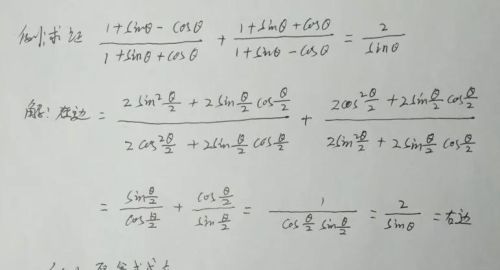 例1:求证 (1+sinθ-cosθ)/(1+sinθ+cosθ) + (1+sinθ+cosθ)/(1+sinθ-cosθ) = 2/sinθ
解:左边 = (2sin²θ/2 + 2sinθ/2 cosθ/2)/(2cos²θ/2 + 2sinθ/2 cosθ/2) + (2cos²θ/2 + 2sinθ/2 cosθ/2)/(2sin²θ/2 + 2sinθ/2 cosθ/2)
= (sinθ/2)/(cosθ/2) + (cosθ/2)/(sinθ/2) = 1/(cosθ/2 sinθ/2) = 2/sinθ = 右边